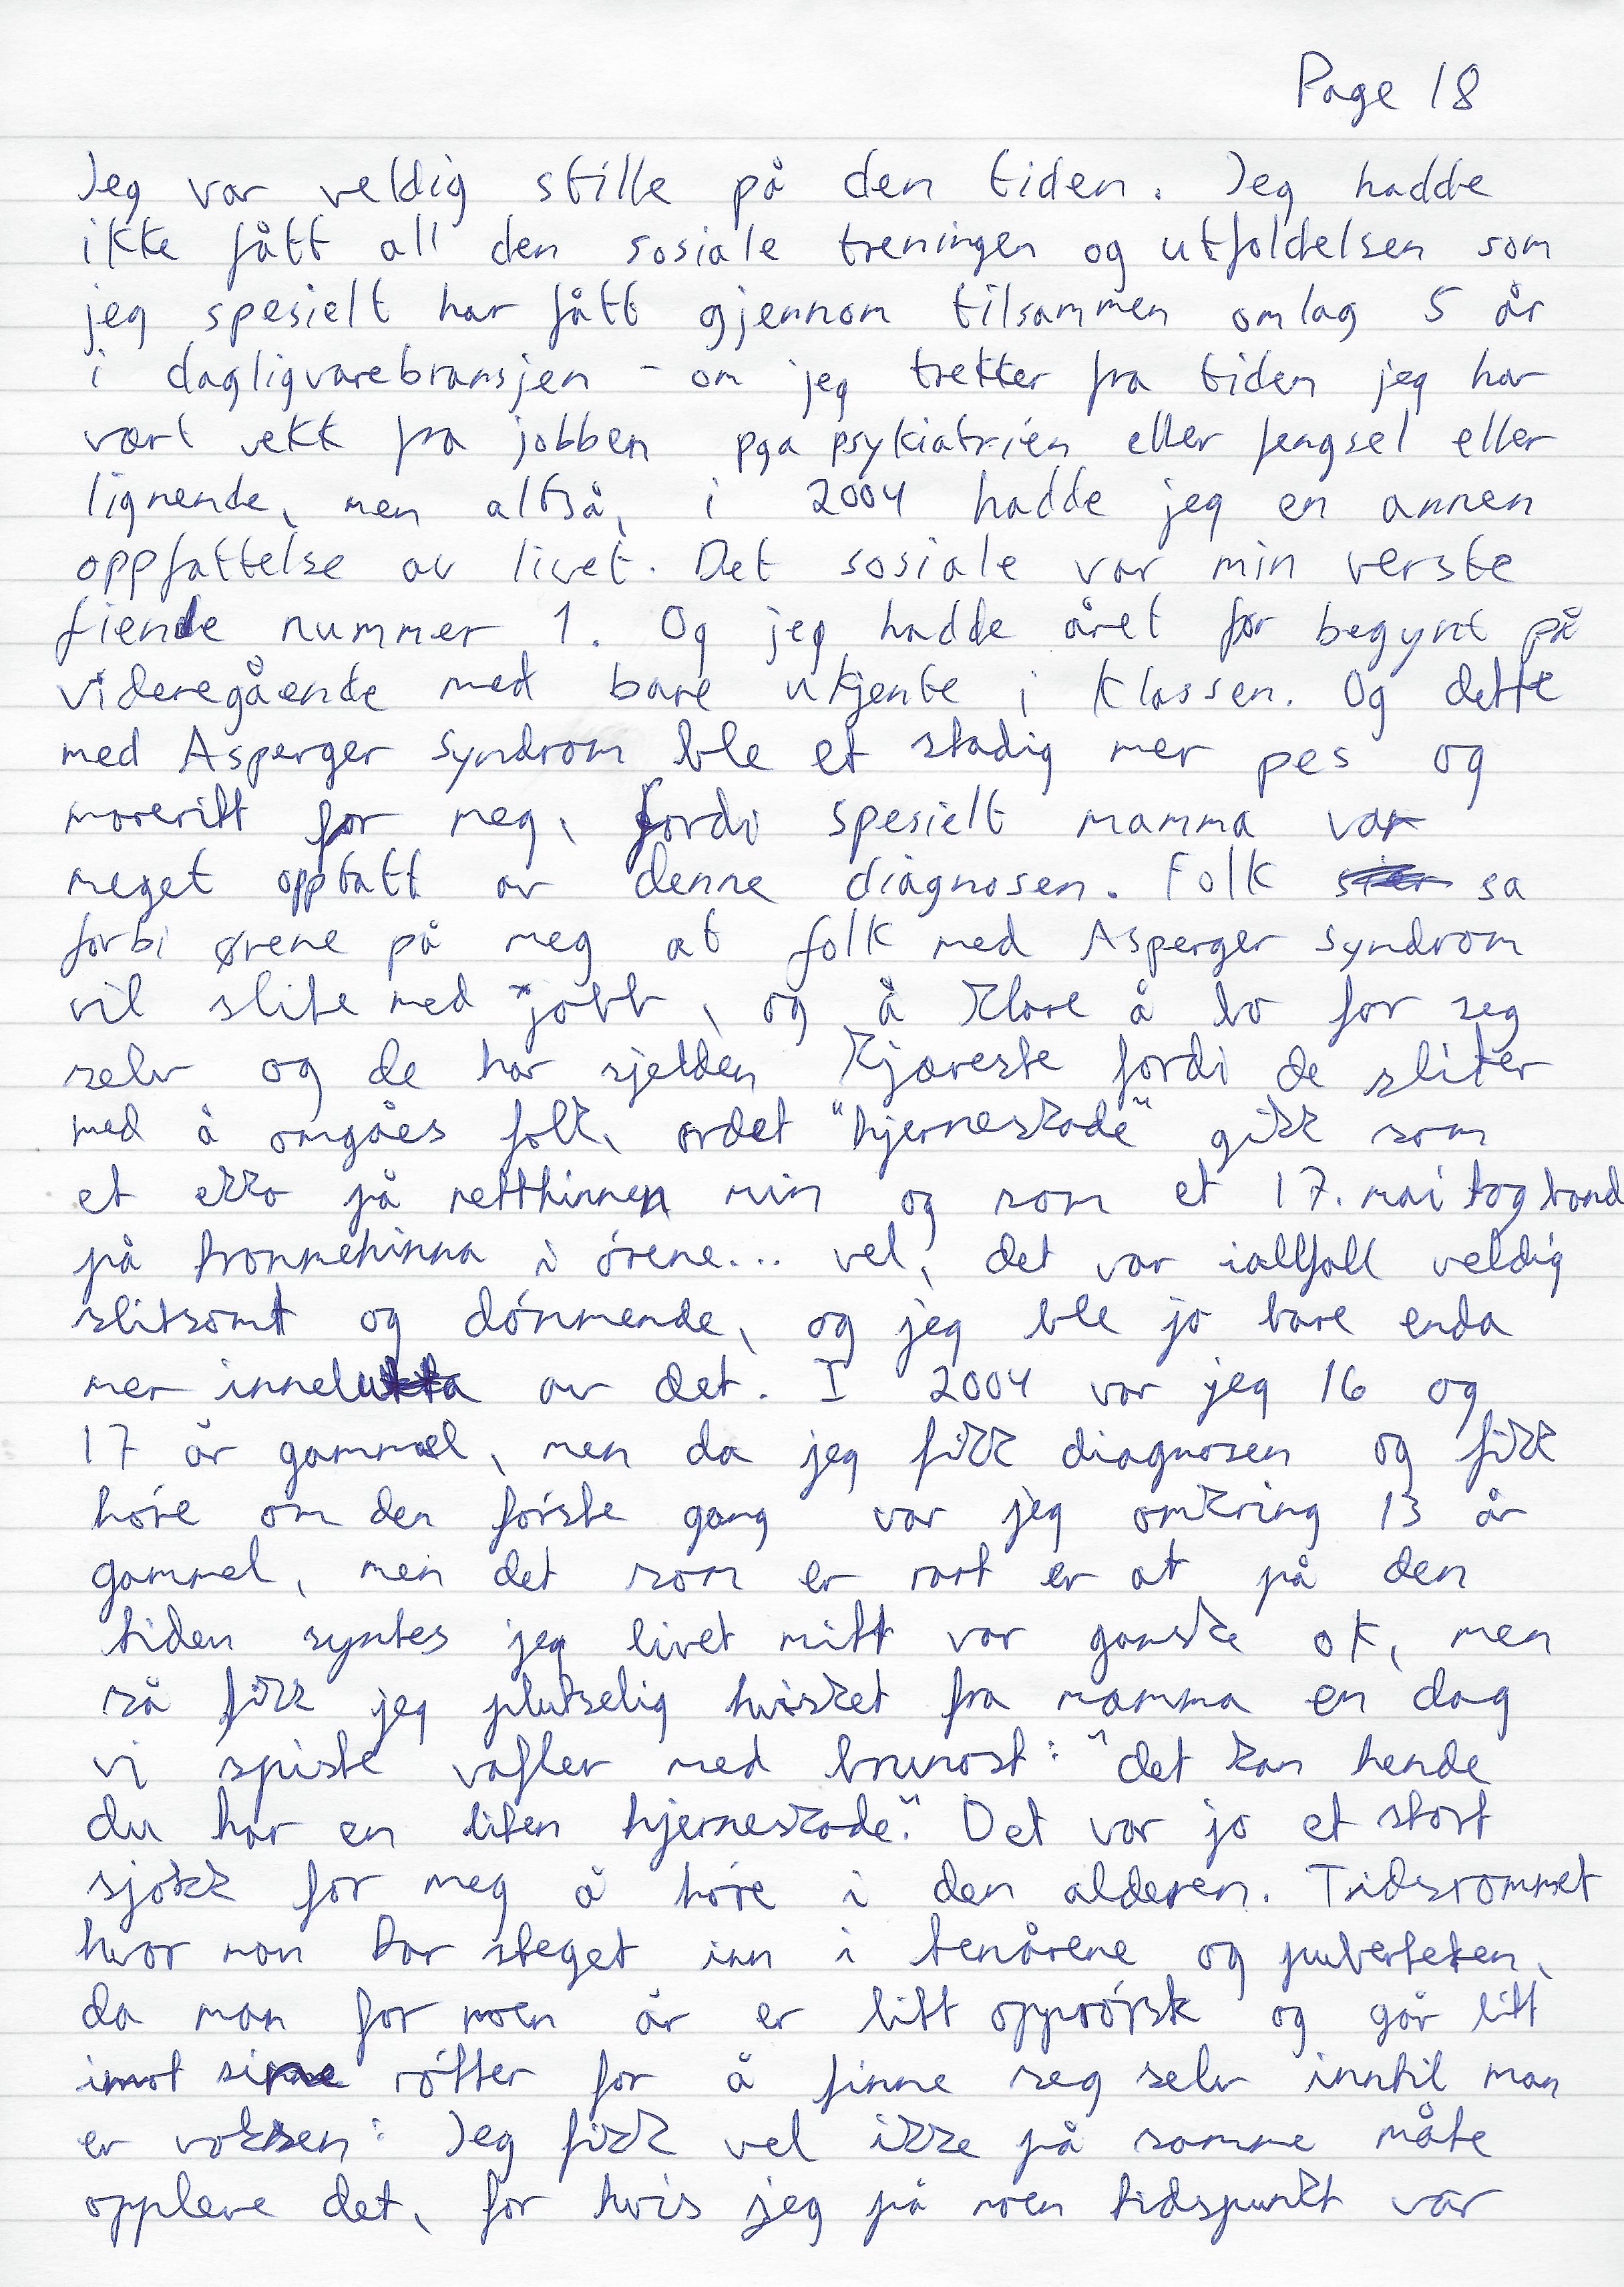 Page 18
Jeg var veldig stille på den tiden. Jeg hadde
ikke fått all den sosiale treningen og utfoldelsen som
jeg spesielt har fått gjennom tilsammen omlag 5 år
i dagligvarebransjen - om jeg trekker fra tiden jeg har
vært vekk fra jobben pga psykiatrien eller fengsel eller
lignende, men altså, i 2004 hadde jeg en annen
oppfattelse av livet. Det sosiale var min verste
fiende nummer 1. Og jeg hadde året før begynt på
videregående med bare ukjente i klassen. Og dette
med Asperger syndrom ble et stadig mer pes og
mareritt for meg, fordi spesielt mamma var
meget opptatt av denne diagnosen. Folk sa
forbi ørene på meg at folk med Asperger syndrom
vil slite med jobb, og å klare å bo for seg
selv og de har sjelden kjæreste fordi de sliter
med å omgåes folk, ordet "hjerneskade" gikk som
et ekko på netthinnen min og som et 17. mai togband
på trommehinna i ørene... vel, det var iallfall veldig
slitsomt og dømmende, og jeg ble jo bare enda
mer innelukka av det. I 2004 var jeg 16 og
17 år gammel, men da jeg fikk diagnosen og fikk
høre om den første gang var jeg omkring 13 år
gammel, men det som er rart er at på den
tiden syntes jeg livet mitt var ganske ok, men
så fikk jeg plutselig hvisket fra mamma en dag
vi spiste vafler med brunost: "det kan hende
du har en liten hjerneskade." Det var jo et stort
sjokk for meg å høre i den alderen. Tidsrommet
hvor man tar steget inn i tenårene og puberteten,
da man for noen år er litt opprørsk og går litt
imot sine røtter for å finne seg selv inntil man
er voksen: Jeg fikk vel ikke på samme måte
oppleve det, for hvis jeg på noen tidspunkt var